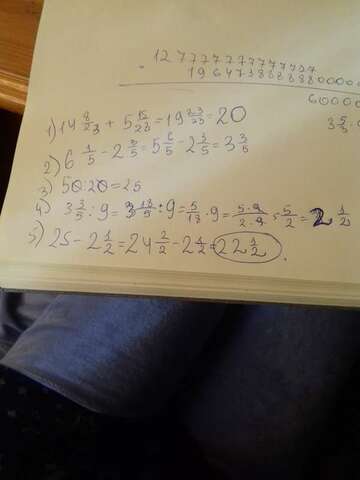 12 77777777777777
19 64738888880000
60000
1) 14 8/23 + 5 15/23 = 19 23/23 = 20
3 5/5
2) 6 1/5 - 2 3/5 = 5 6/5 - 2 3/5 = 3 3/5
3) 50:20=25
4) 3 3/5 : 9 = 18/5 : 9 = 5/18 · 9 = 5·9/2·9 = 5/2 = 2 1/2
5) 25 - 2 1/2 = 24 2/2 - 2 1/2 = 22 1/2.